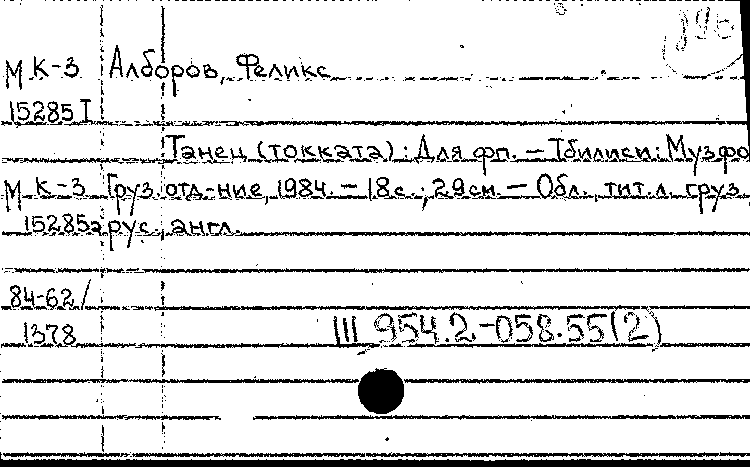 896
М К-3 Алборов, Феликс
15285 I
Танец (токката) : Для фп. — Тбилиси : Музфо
М К-3 Груз. отд-ние, 1984. — 18 с. ; 29 см. — Обл., тит. л. груз.,
15285а рус., англ.
84-62/
1378
III 954.2-058.55(2)